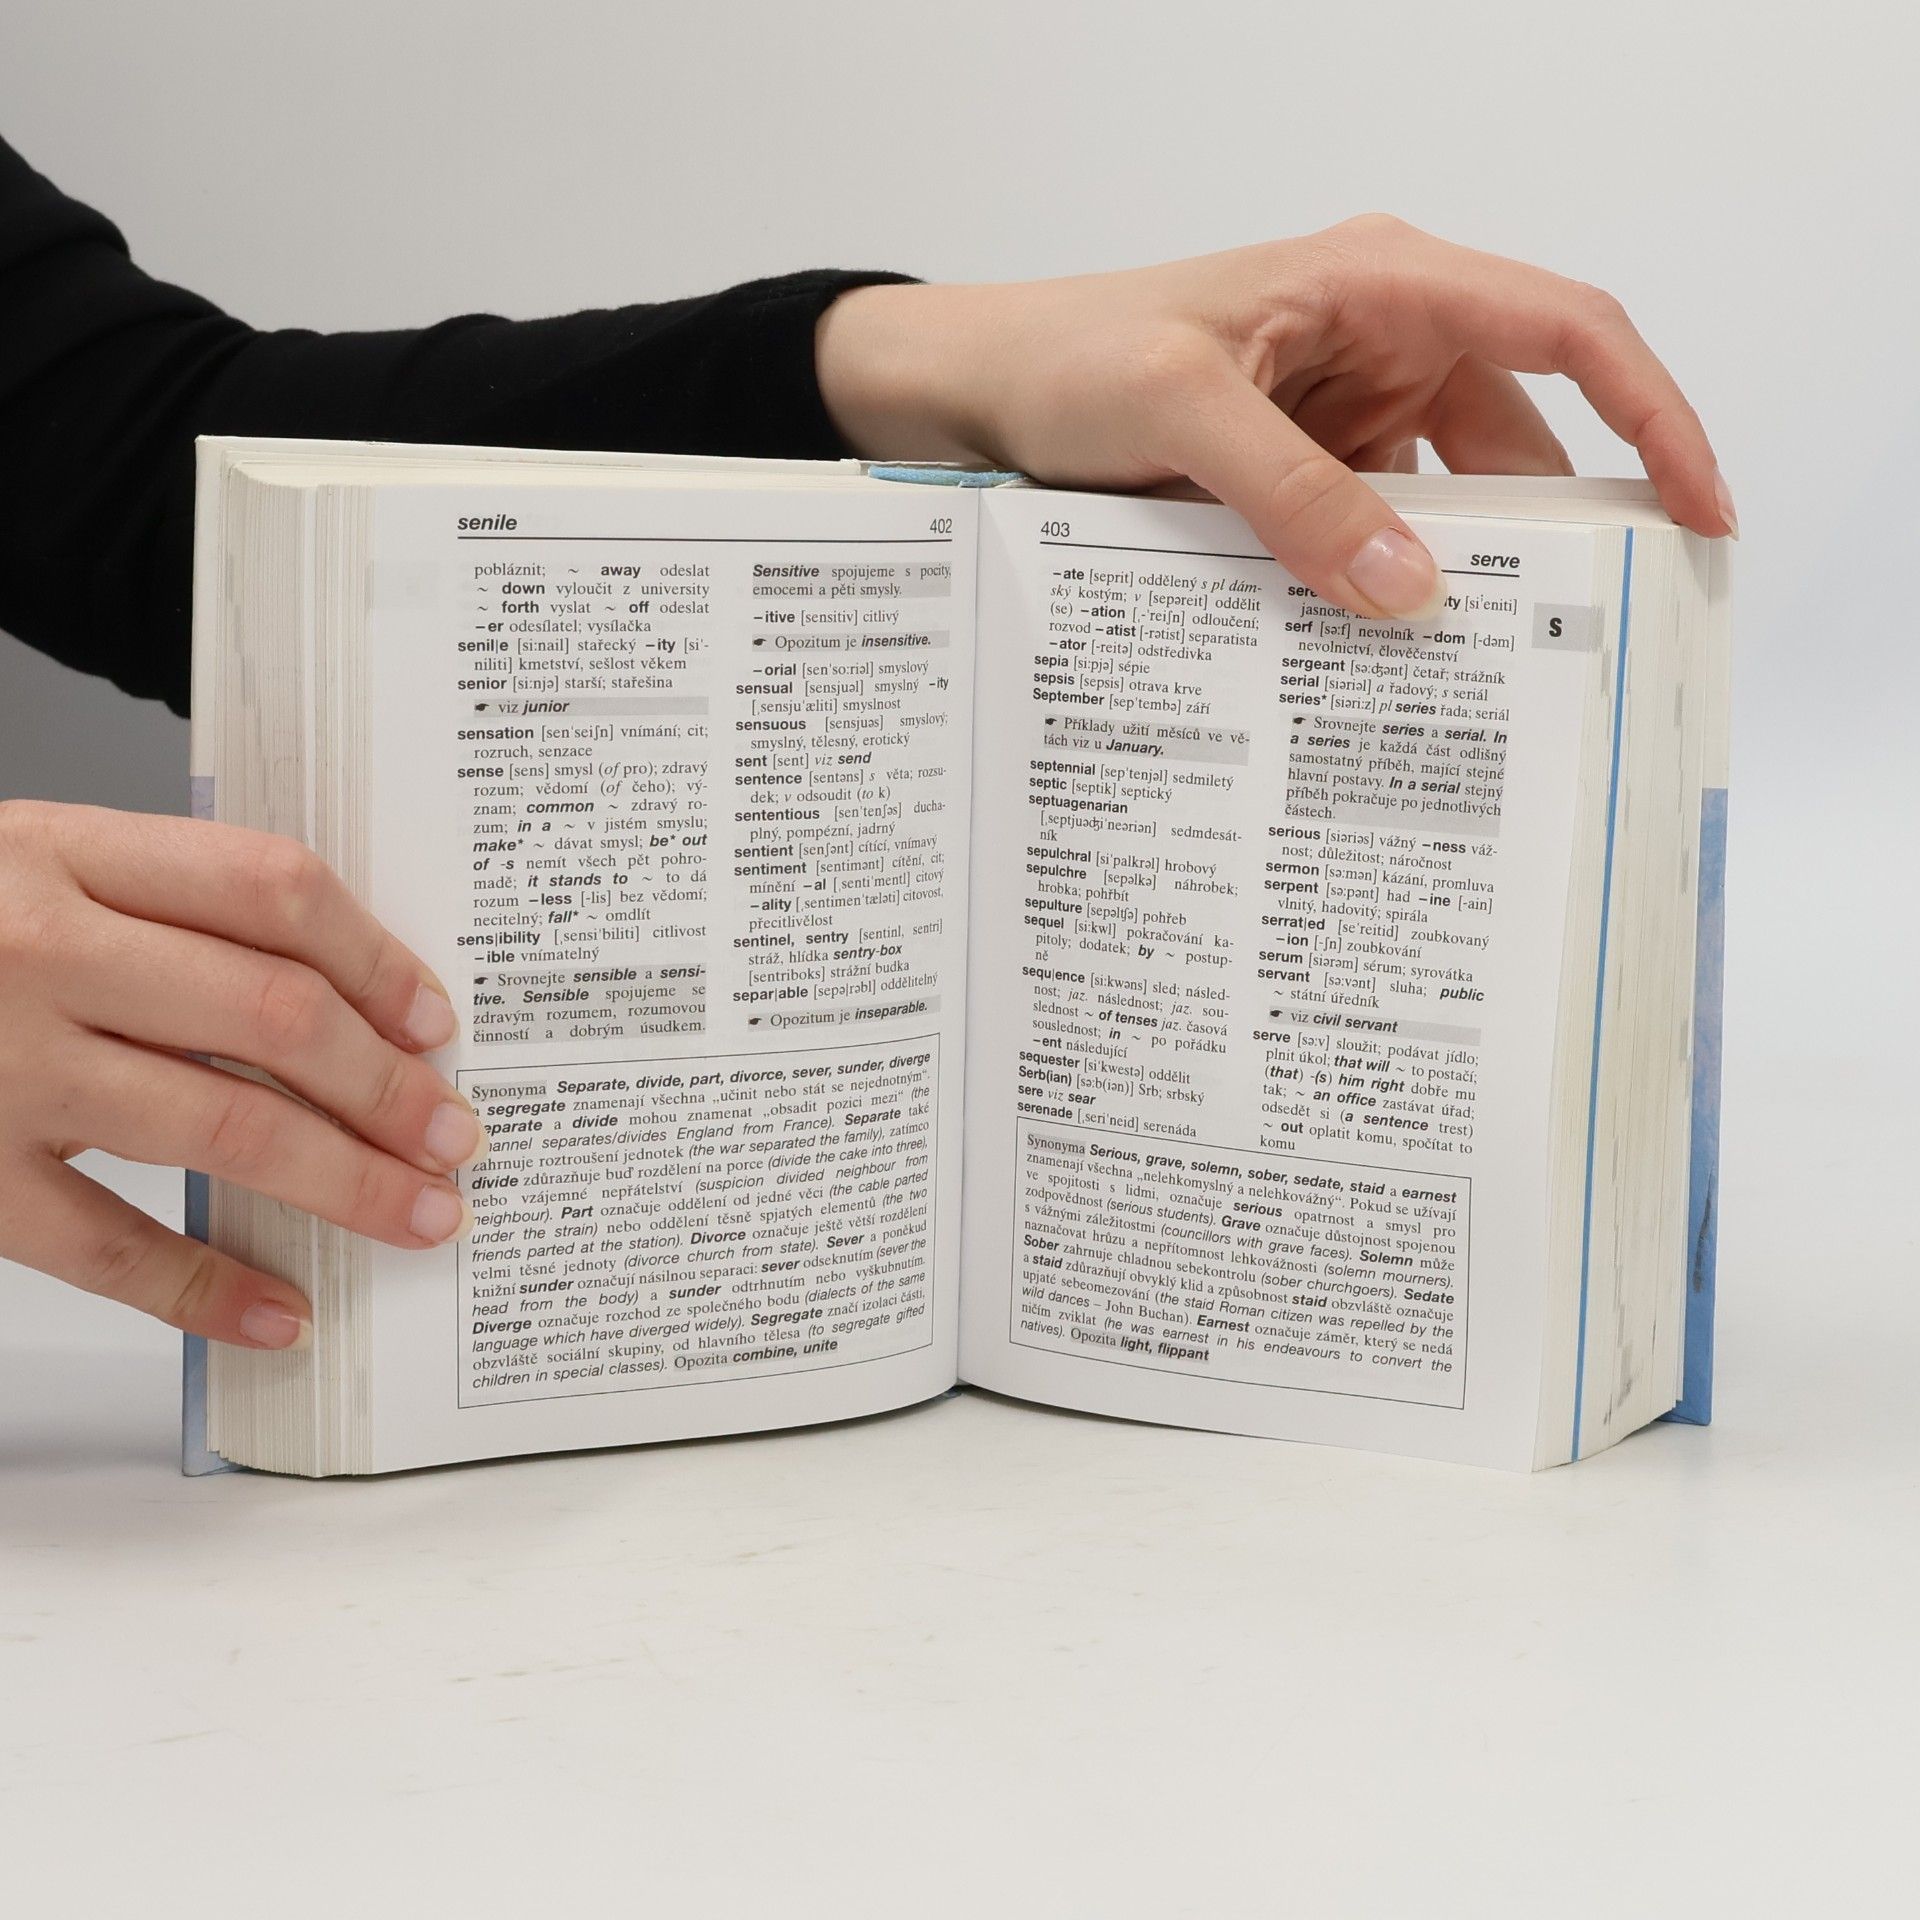 senile 402
pobláznit; ~ away odeslat
~ down vyloučit z university
~ forth vyslat ~ off odeslat
–er odesílatel; vysílačka
senil|e [si:nail] stařecký –ity [si'-
niliti] kmetství, sešlost věkem
senior [si:njə] starší; stařešina
☛ viz junior
sensation [sen'seiʃn] vnímání; cit;
rozruch, senzace
sense [sens] smysl (of pro); zdravý
rozum; vědomí (of čeho); vý-
znam; common ~ zdravý ro-
zum; in a ~ v jistém smyslu;
make* ~ dávat smysl; be* out
of -s nemít všech pět pohro-
madě; it stands to ~ to dá
rozum –less [-lis] bez vědomí;
necitelný; fall* ~ omdlít
sens|ibility [ˌsensi'biliti] citlivost
–ible vnímatelný
☛ Srovnejte sensible a sensi-
tive. Sensible spojujeme se
zdravým rozumem, rozumovou
činností a dobrým úsudkem.
Sensitive spojujeme s pocity,
emocemi a pěti smysly.
–itive [sensitiv] citlivý
☛ Opozitum je insensitive.
–orial [sen'so:riəl] smyslový
sensual [sensjuəl] smyslný –ity
[ˌsensju'æliti] smyslnost
sensuous [sensjuəs] smyslový;
smyslný, tělesný, erotický
sent [sent] viz send
sentence [sentəns] s věta; rozsu-
dek; v odsoudit (to k)
sententious [sen'tenʃəs] ducha-
plný, pompézní, jadrný
sentient [senʃənt] cítící, vnímavý
sentiment [sentimənt] cítění, cit;
mínění –al [ˌsenti'mentl] citový
–ality [ˌsentimen'tæləti] citovost,
přecitlivělost
sentinel, sentry [sentinl, sentri]
stráž, hlídka sentry-box
[sentriboks] strážní budka
separ|able [sepə|rəbl] oddělitelný
☛ Opozitum je inseparable.
Synonyma Separate, divide, part, divorce, sever, sunder, diverge
a segregate znamenají všechna „učinit nebo stát se nejednotným“.
eparate a divide mohou znamenat „obsadit pozici mezi“ (the
hannel separates/divides England from France). Separate také
zahrnuje roztroušení jednotek (the war separated the family), zatímco
divide zdůrazňuje buď rozdělení na porce (divide the cake into three),
nebo vzájemné nepřátelství (suspicion divided neighbour from
neighbour). Part označuje oddělení od jedné věci (the cable parted
under the strain) nebo oddělení těsně spjatých elementů (the two
friends parted at the station). Divorce označuje ještě větší rozdělení
velmi těsné jednoty (divorce church from state). Sever a poněkud
knižní sunder označují násilnou separaci: sever odseknutím (sever the
head from the body) a sunder odtrhnutím nebo vyškubnutím.
Diverge označuje rozchod ze společného bodu (dialects of the same
language which have diverged widely). Segregate značí izolaci části,
obzvláště sociální skupiny, od hlavního tělesa (to segregate gifted
children in special classes). Opozita combine, unite
403 serve
–ate [seprit] oddělený s pl dám-
ský kostým; v [sepəreit] oddělit
(se) –ation [ˌ-'reiʃn] odloučení;
rozvod –atist [-rətist] separatista
–ator [-reitə] odstředivka
sepia [si:pjə] sépie
sepsis [sepsis] otrava krve
September [sep'tembə] září
☛ Příklady užití měsíců ve vě-
tách viz u January.
septennial [sep'tenjəl] sedmiletý
septic [septik] septický
septuagenarian
[ˌseptjuədʒi'neəriən] sedmdesát-
ník
sepulchral [si'palkrəl] hrobový
sepulchre [sepəlkə] náhrobek;
hrobka; pohřbít
sepulture [sepəltʃə] pohřeb
sequel [si:kwl] pokračování ka-
pitoly; dodatek; by ~ postup-
ně
sequ|ence [si:kwəns] sled; násled-
nost; jaz. následnost; jaz. sou-
slednost ~ of tenses jaz. časová
souslednost; in ~ po pořádku
–ent následující
sequester [si'kwestə] oddělit
Serb(ian) [sə:b(iən)] Srb; srbský
sere viz sear
serenade [ˌseri'neid] serenáda
sere ity [si'eniti]
jasnost,
serf [sə:f] nevolník –dom [-dəm]
nevolnictví, člověčenství
sergeant [sə:dʒənt] četař; strážník
serial [siəriəl] a řadový; s seriál
series* [siəri:z] pl series řada; seriál
☛ Srovnejte series a serial. In
a series je každá část odlišný
samostatný příběh, mající stejné
hlavní postavy. In a serial stejný
příběh pokračuje po jednotlivých
částech.
serious [siəriəs] vážný –ness váž-
nost; důležitost; náročnost
sermon [sə:mən] kázání, promluva
serpent [sə:pənt] had –ine [-ain]
vlnitý, hadovitý; spirála
serrat|ed [se'reitid] zoubkovaný
–ion [-ʃn] zoubkování
serum [siərəm] sérum; syrovátka
servant [sə:vənt] sluha; public
~ státní úředník
☛ viz civil servant
serve [sə:v] sloužit; podávat jídlo;
plnit úkol; that will ~ to postačí;
(that) -(s) him right dobře mu
tak; ~ an office zastávat úřad;
odsedět si (a sentence trest)
~ out oplatit komu, spočítat to
komu
S
Synonyma Serious, grave, solemn, sober, sedate, staid a earnest
znamenají všechna „nelehkomyslný a nelehkovážný“. Pokud se užívají
ve spojitosti s lidmi, označuje serious opatrnost a smysl pro
zodpovědnost (serious students). Grave označuje důstojnost spojenou
s vážnými záležitostmi (councillors with grave faces). Solemn může
naznačovat hrůzu a nepřítomnost lehkovážnosti (solemn mourners).
Sober zahrnuje chladnou sebekontrolu (sober churchgoers). Sedate
a staid zdůrazňují obvyklý klid a způsobnost staid obzvláště označuje
upjaté sebeomezování (the staid Roman citizen was repelled by the
wild dances – John Buchan). Earnest označuje záměr, který se nedá
ničím zviklat (he was earnest in his endeavours to convert the
natives). Opozita light, flippant